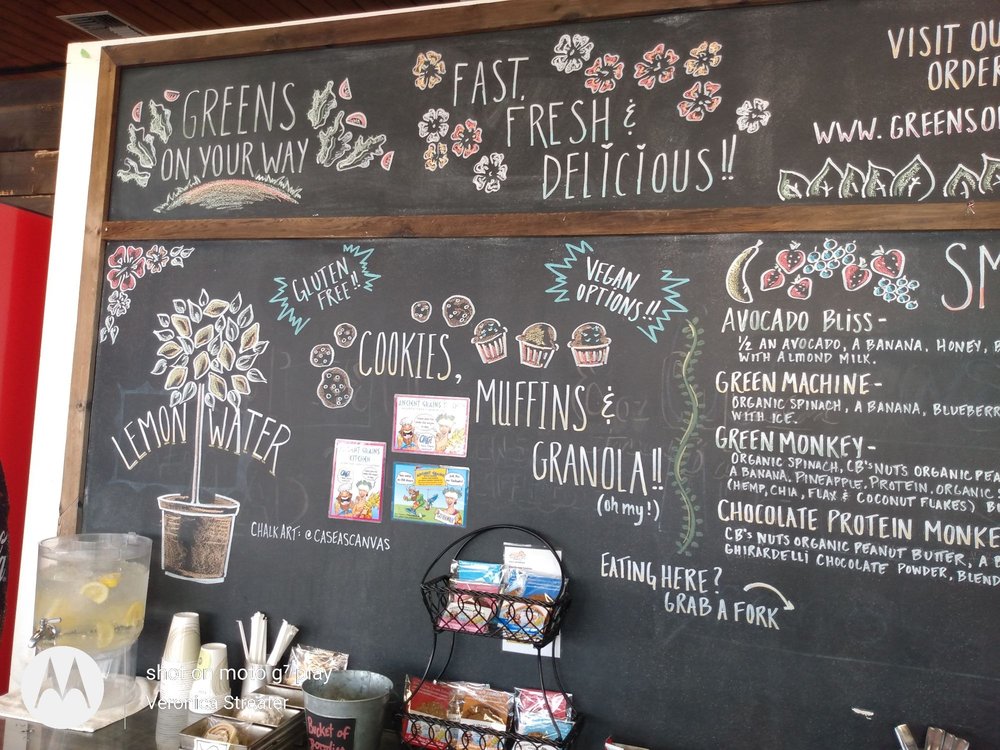 GREENS
ON YOUR WAY
FAST,
FRESH &
DELICIOUS!!
VISIT OU
ORDER
WWW.GREENSO
GLUTEN
FREE!!
VEGAN
OPTIONS!!
COOKIES,
MUFFINS &
GRANOLA!!
(oh my!)
LEMON WATER
CHALK ART: @CASEASCANVAS
SM
AVOCADO BLISS-
1/2 AN AVOCADO, A BANANA, HONEY, B
WITH ALMOND MILK.
GREEN MACHINE-
ORGANIC SPINACH, A BANANA, BLUEBERR
WITH ICE.
GREEN MONKEY-
ORGANIC SPINACH, CB'S NUTS ORGANIC PEA
A BANANA, PINEAPPLE, PROTEIN, ORGANIC
(HEMP, CHIA, FLAX & COCONUT FLAKES) B
CHOCOLATE PROTEIN MONKE
CB'S NUTS ORGANIC PEANUT BUTTER, A B
GHIRARDELLI CHOCOLATE POWDER, BLEND
EATING HERE?
GRAB A FORK
ANCIENT GRAINS
ANCIENT GRAINS
KITCHEN
Bucket of
shot on moto g7 play
Veronica Streater